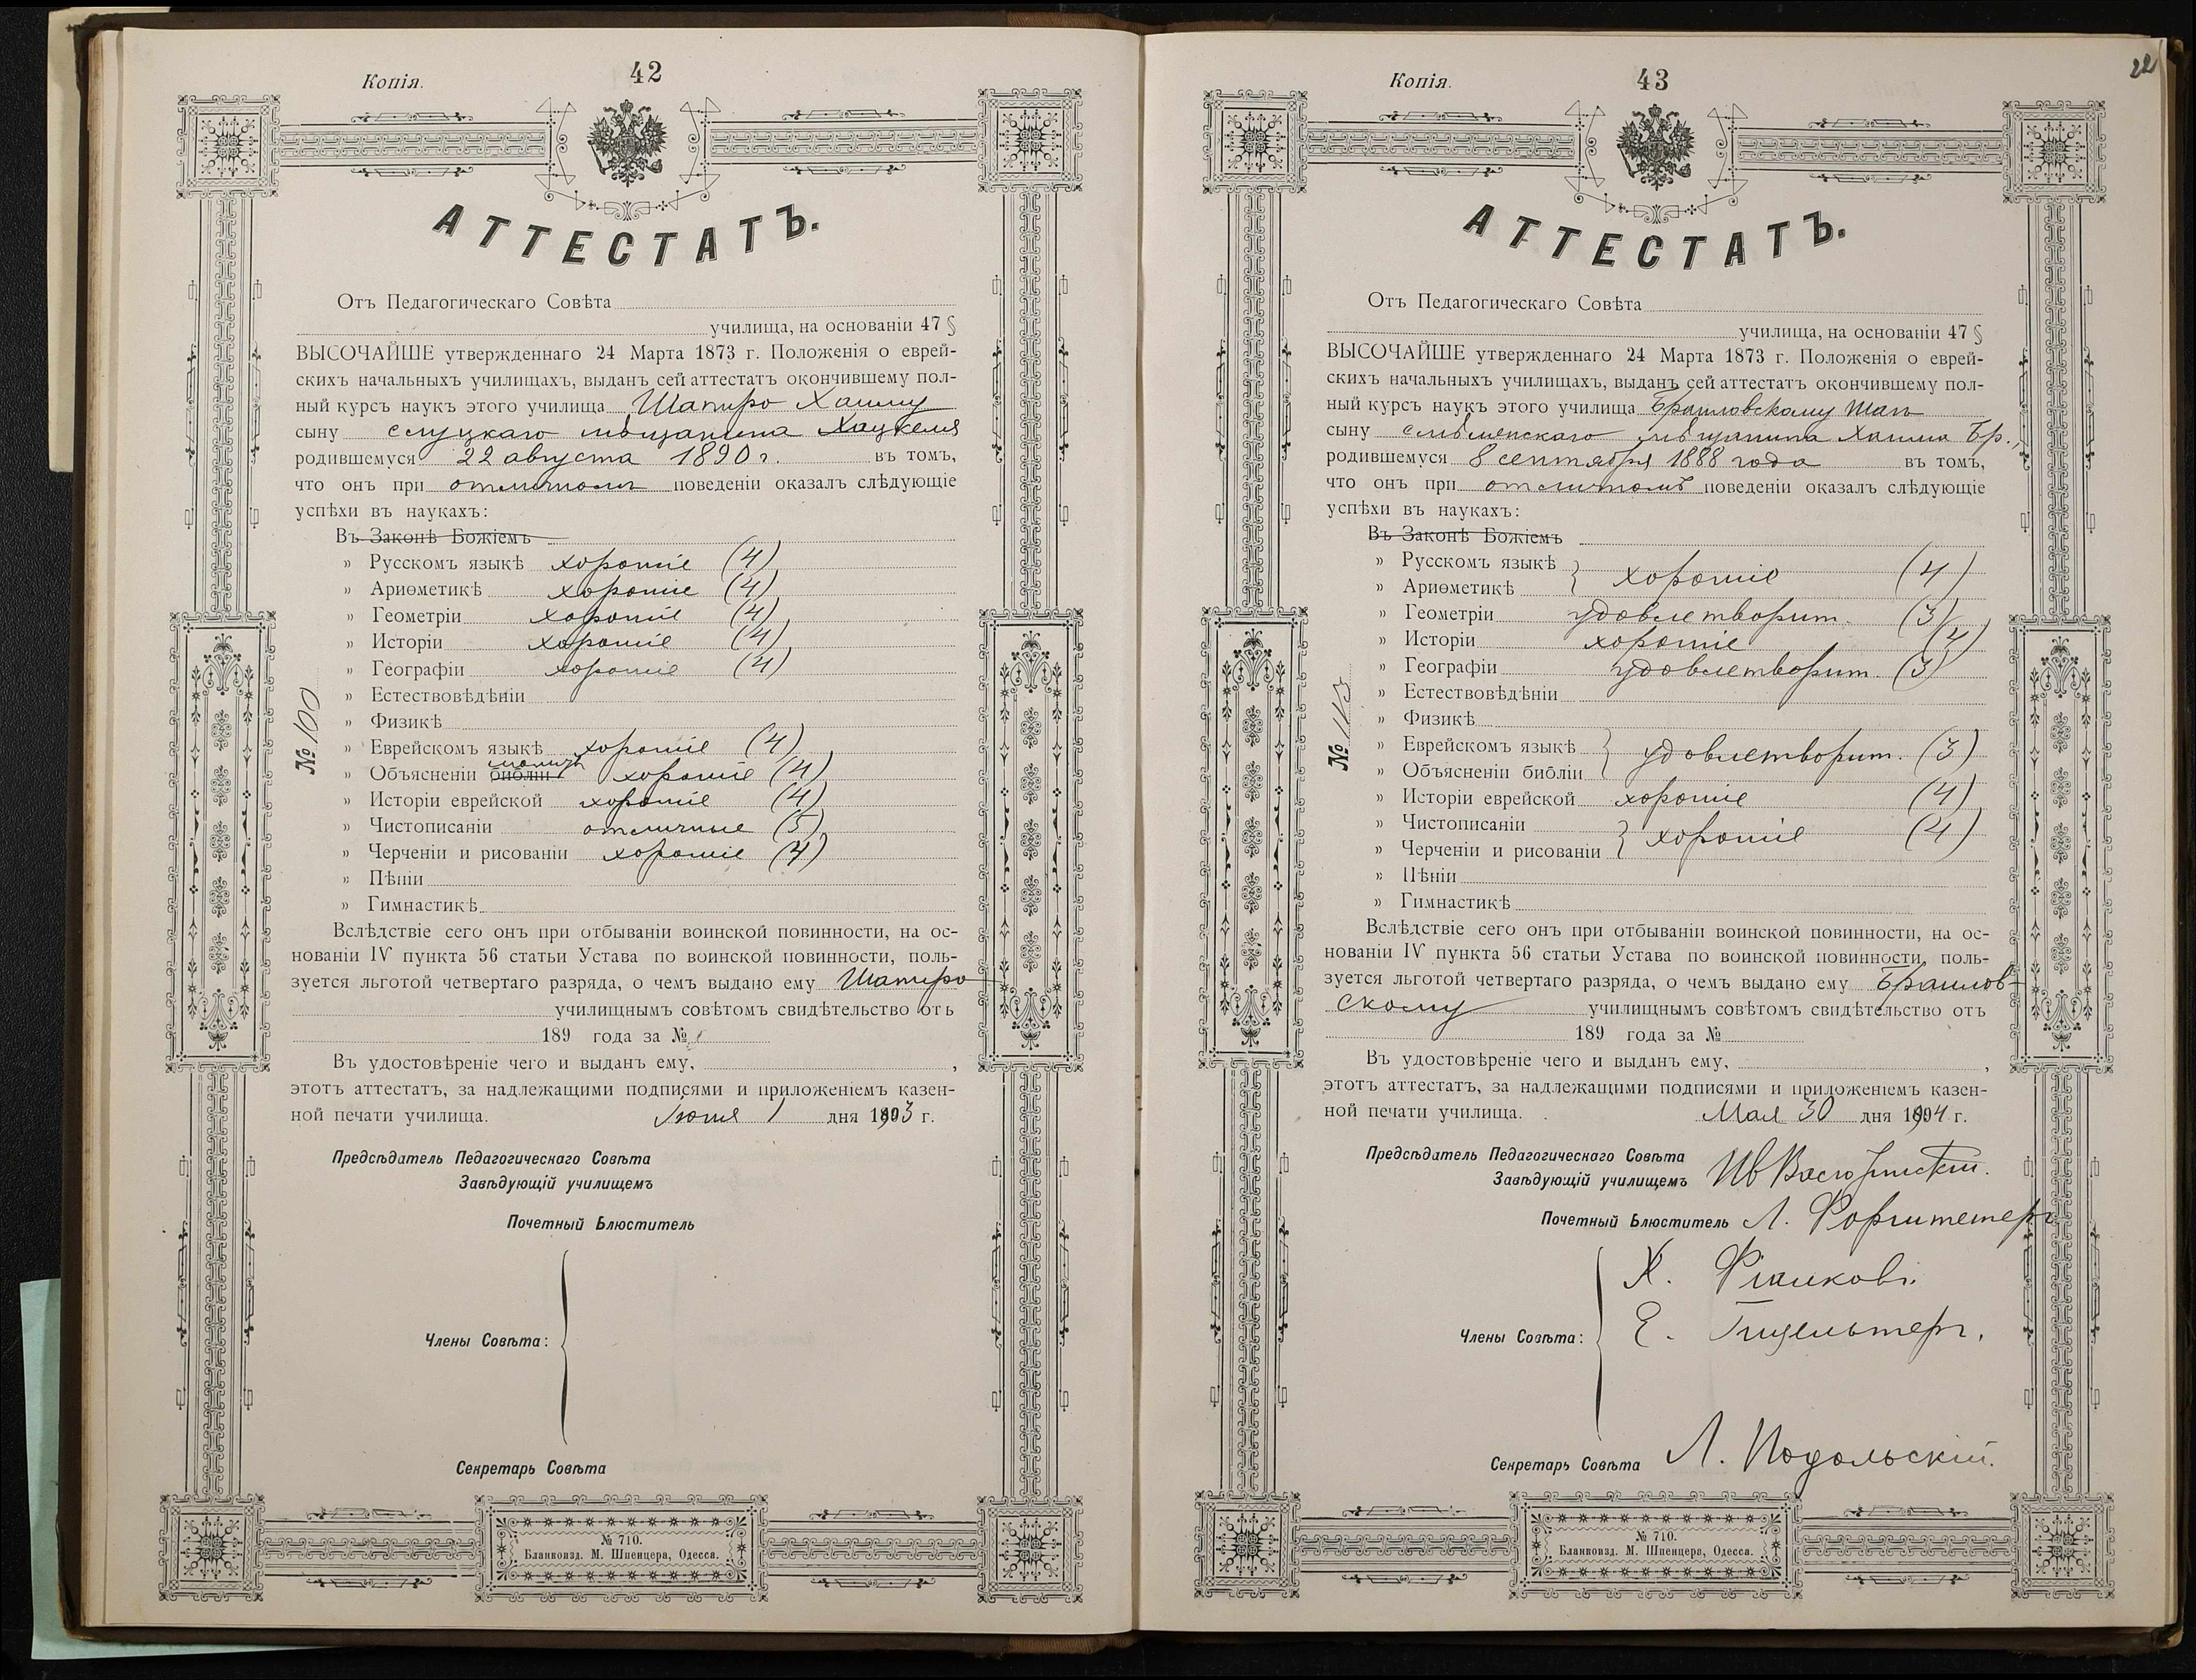 Копія.
42
АТТЕСТАТЪ.
Отъ Педагогическаго Совѣта
училища, на основаніи 47 §
ВЫСОЧАЙШЕ утвержденнаго 24 Марта 1873 г. Положенія о еврей-
скихъ начальныхъ училищахъ, выданъ сей аттестатъ окончившему пол-
ный курсъ наукъ этого училища Шапиро Хаиму
сыну слуцкаго мѣщанина Хацкеля
родившемуся 22 августа 1890 г. въ томъ,
что онъ при отличномъ поведеніи оказалъ слѣдующіе
успѣхи въ наукахъ:
Въ Законѣ Божіемъ
» Русскомъ языкѣ хорошіе (4)
» Ариѳметикѣ хорошіе (4)
» Геометріи хорошіе (4)
» Исторіи хорошіе (4)
» Географіи хорошіе (4)
» Естествовѣдѣніи
» Физикѣ
» Еврейскомъ языкѣ хорошіе (4)
» Объясненіи библіи хорошіе (4)
» Исторіи еврейской хорошіе (4)
» Чистописаніи отличные (5)
» Черченіи и рисованіи хорошіе (4)
» Пѣніи
» Гимнастикѣ
№ 100
Вслѣдствіе сего онъ при отбываніи воинской повинности, на ос-
нованіи IV пункта 56 статьи Устава по воинской повинности, поль-
зуется льготой четвертаго разряда, о чемъ выдано ему Шапиро
училищнымъ совѣтомъ свидѣтельство отъ
189 года за №
Въ удостовѣреніе чего и выданъ ему, ,
этотъ аттестатъ, за надлежащими подписями и приложеніемъ казен-
ной печати училища. Іюня 1 дня 1903 г.
Предсѣдатель Педагогическаго Совѣта
Завѣдующій училищемъ
Почетный Блюститель
Члены Совѣта:
Секретарь Совѣта
№ 710.
Бланкоизд. М. Шпенцера, Одесса.
Копія.
43
22
АТТЕСТАТЪ.
Отъ Педагогическаго Совѣта
училища, на основаніи 47 §
ВЫСОЧАЙШЕ утвержденнаго 24 Марта 1873 г. Положенія о еврей-
скихъ начальныхъ училищахъ, выданъ сей аттестатъ окончившему пол-
ный курсъ наукъ этого училища Браиловскому
сыну мѣщанина Хаима Бр.
родившемуся 8 сентября 1888 года въ томъ,
что онъ при отличномъ поведеніи оказалъ слѣдующіе
успѣхи въ наукахъ:
Въ Законѣ Божіемъ
» Русскомъ языкѣ
» Ариѳметикѣ хорошіе (4)
» Геометріи удовлетворит. (3)
» Исторіи хорошіе (4)
» Географіи удовлетворит. (3)
» Естествовѣдѣніи
» Физикѣ
» Еврейскомъ языкѣ
» Объясненіи библіи удовлетворит. (3)
» Исторіи еврейской хорошіе (4)
» Чистописаніи
» Черченіи и рисованіи хорошіе (4)
» Пѣніи
» Гимнастикѣ
№ 113
Вслѣдствіе сего онъ при отбываніи воинской повинности, на ос-
нованіи IV пункта 56 статьи Устава по воинской повинности, поль-
зуется льготой четвертаго разряда, о чемъ выдано ему Браилов-
скому училищнымъ совѣтомъ свидѣтельство отъ
189 года за №
Въ удостовѣреніе чего и выданъ ему, ,
этотъ аттестатъ, за надлежащими подписями и приложеніемъ казен-
ной печати училища. Мая 30 дня 1904 г.
Предсѣдатель Педагогическаго Совѣта
Завѣдующій училищемъ
Почетный Блюститель Л.
Х.
Члены Совѣта: Е.
Секретарь Совѣта Л. Подольскій.
№ 710.
Бланкоизд. М. Шпенцера, Одесса.